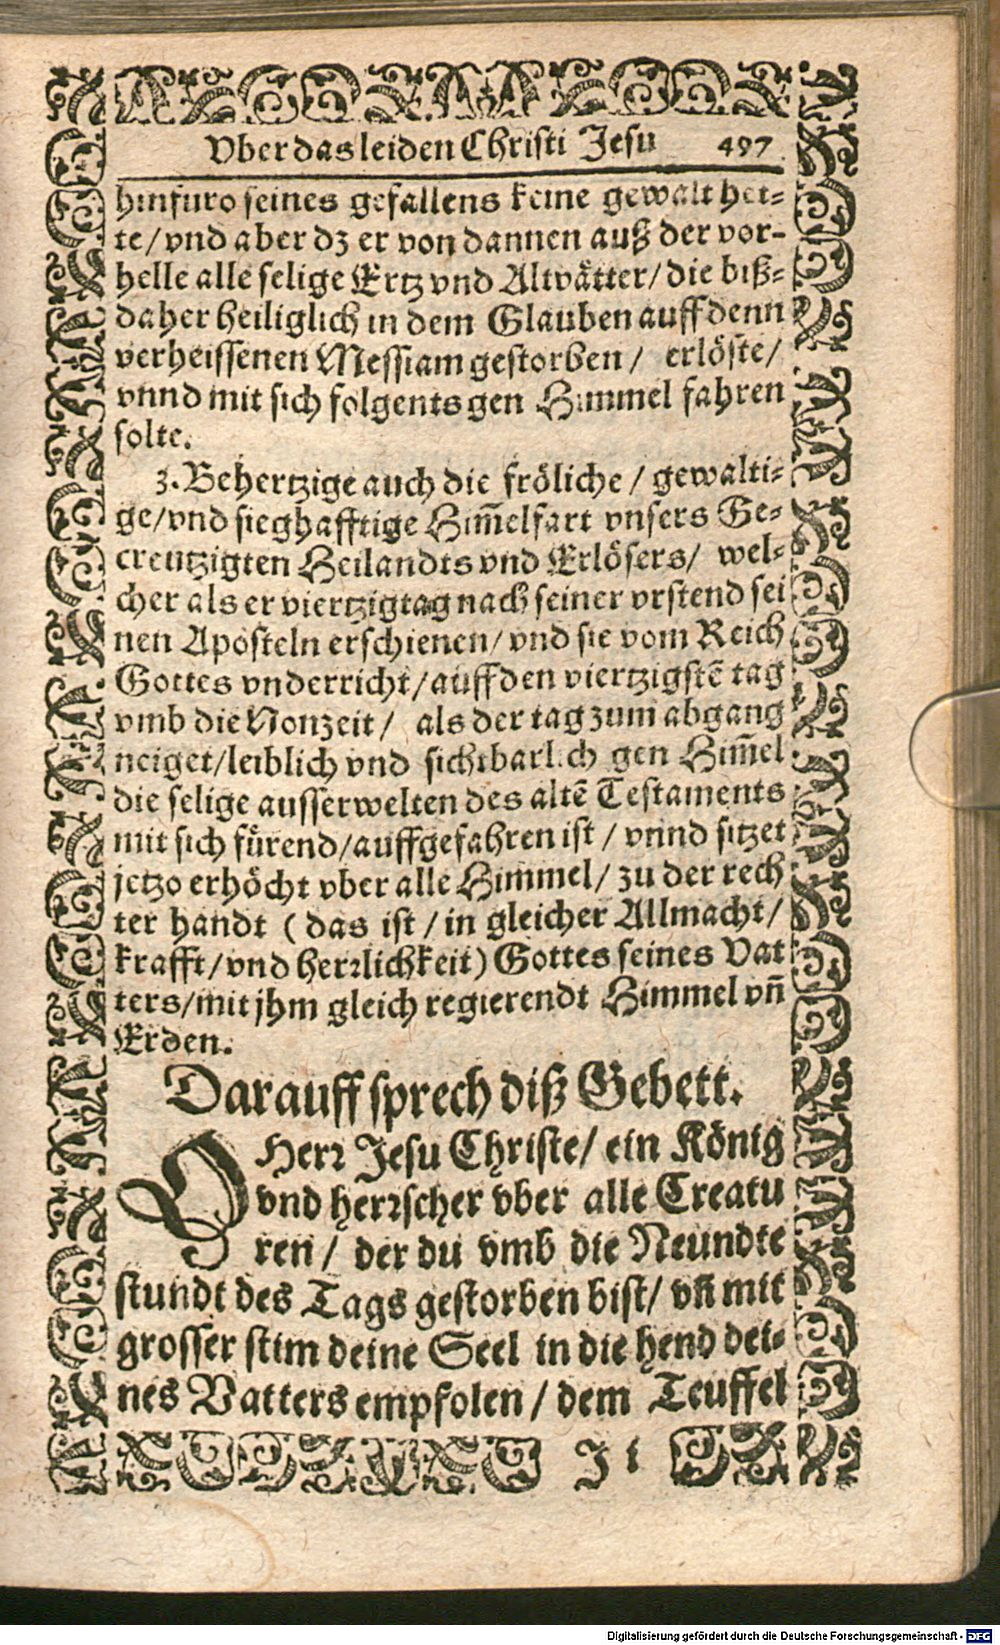 Vber das leiden Christi Jesu 497
hinfuro seines gefallens keine gewalt het-
te/vnd aber dz er von dannen auß der vor-
helle alle selige Ertz vnd Altvätter/die biß-
daher heiliglich in dem Glauben auff denn
verheissenen Messiam gestorben/ erlöste/
vnnd mit sich folgents gen Himmel fahren
solte.
3. Behertzige auch die fröliche/gewalti-
ge/vnd sieghafftige Him̃elfart vnsers Ge-
creutzigten Heilandts vnd Erlösers/ wel-
cher als er viertzig tag nach seiner vrstend sei
nen Aposteln erschienen/vnd sie vom Reich
Gottes vnderricht/auff den viertzigstẽ tag
vmb die Nonzeit/ als der tag zum abgang
neiget/leiblich vnd sichtbarlich gen Him̃el
die selige ausserwelten des altẽ Testaments
mit sich fürend/auffgefahren ist/vnnd sitzet
jetzo erhöcht vber alle Himmel/zu der rech
ter handt (das ist/in gleicher Allmacht/
krafft/vnd herrlichkeit) Gottes seines Vat
ters/mit jhm gleich regierendt Himmel vñ
Erden.
Darauff sprech diß Gebett.
O Herr Jesu Christe/ein König
vnd herrscher vber alle Creatu
ren/ der du vmb die Neundte
stundt des Tags gestorben bist/vñ mit
grosser stim deine Seel in die hend dei-
nes Vatters empfolen/dem Teuffel
Ji
Digitalisierung gefördert durch die Deutsche Forschungsgemeinschaft - DFG